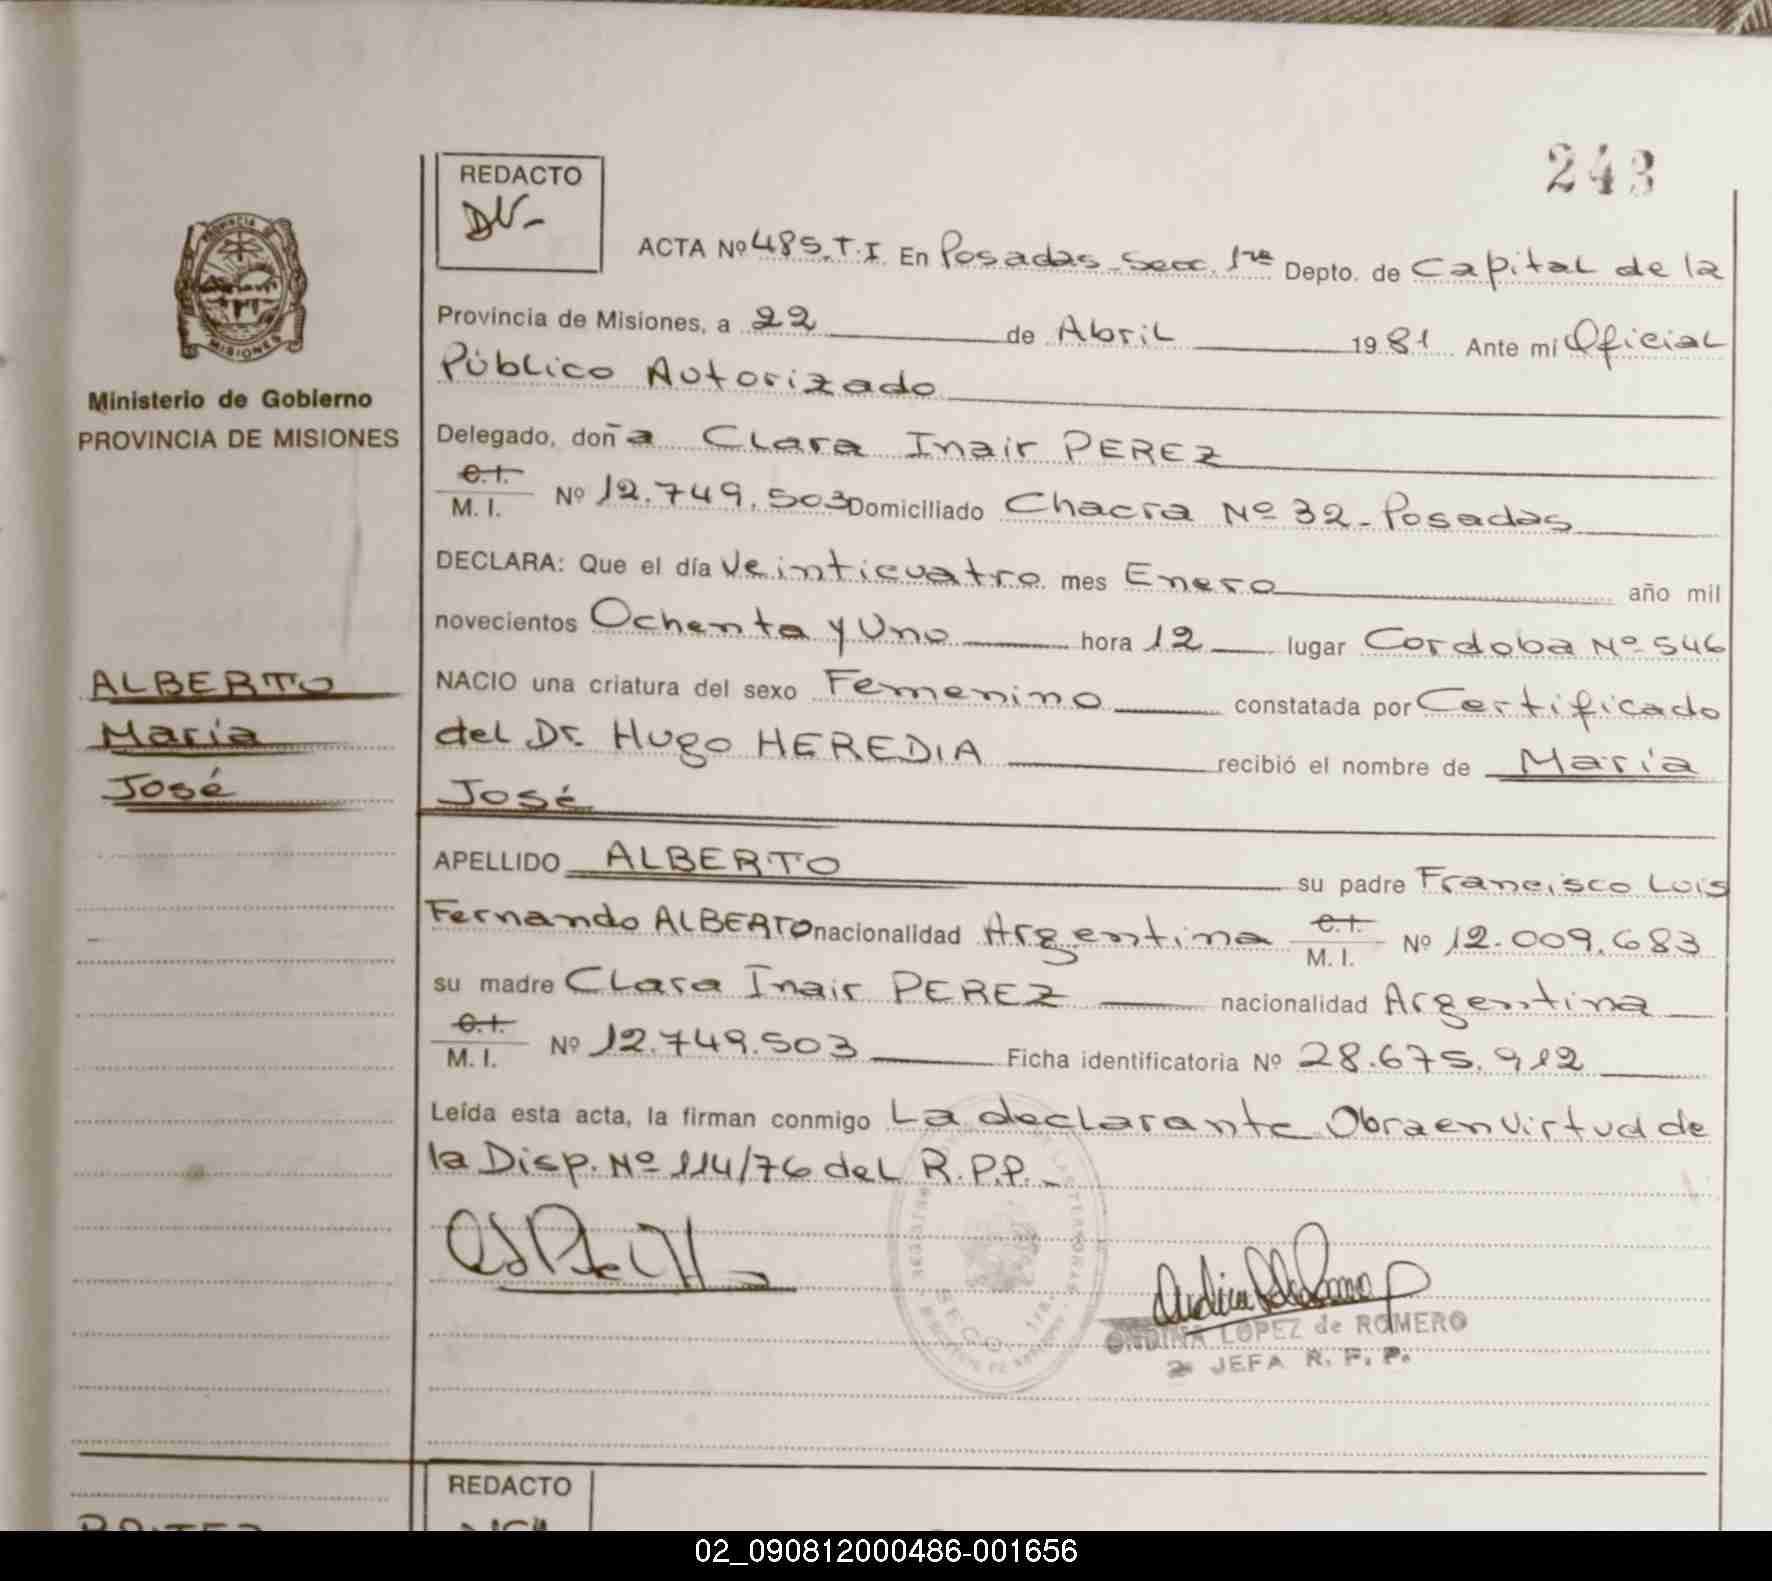 243
REDACTO
DV-
ACTA Nº 485.T.I. En Posadas-Secc. 1ra Depto. de Capital de la
Provincia de Misiones, a 22 de Abril 1981 Ante mí Oficial
Público Autorizado
Delegado, doña Clara Inair PEREZ
C.I.
M. I. Nº 12.749.503 Domiciliado Chacra Nº 32-Posadas
DECLARA: Que el día Veinticuatro mes Enero año mil
novecientos Ochenta y Uno hora 12 lugar Cordoba Nº 546
NACIO una criatura del sexo Femenino constatada por Certificado
del Dr. Hugo HEREDIA recibió el nombre de María
José
APELLIDO ALBERTO su padre Francisco Luis
Fernando ALBERTO nacionalidad Argentina C.I. M. I. Nº 12.009.683
su madre Clara Inair PEREZ nacionalidad Argentina
C.I.
M. I. Nº 12.749.503 Ficha identificatoria Nº 28.675.912
Leída esta acta, la firman conmigo La declarante Obra en Virtud de
la Disp. Nº 114/76 del R.P.P.-
SECC. 1ra.
ONDINA LOPEZ de ROMERO
2ª JEFA R. P. P.
PROVINCIA DE
MISIONES
Ministerio de Gobierno
PROVINCIA DE MISIONES
ALBERTO
María
José
REDACTO
02_090812000486-001656